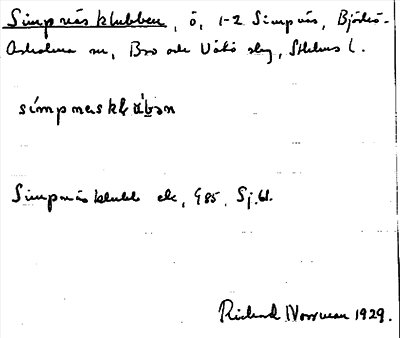 Simpnäs klubben, ö, 1-2 Simpnäs, Björkö-
Arholma sn, Bro och Vätö skg, Sthlms l.
símpneskl`úbən
Simpnäs klubb ek, G85, Sj.kl.
Rickard Norrman 1929.